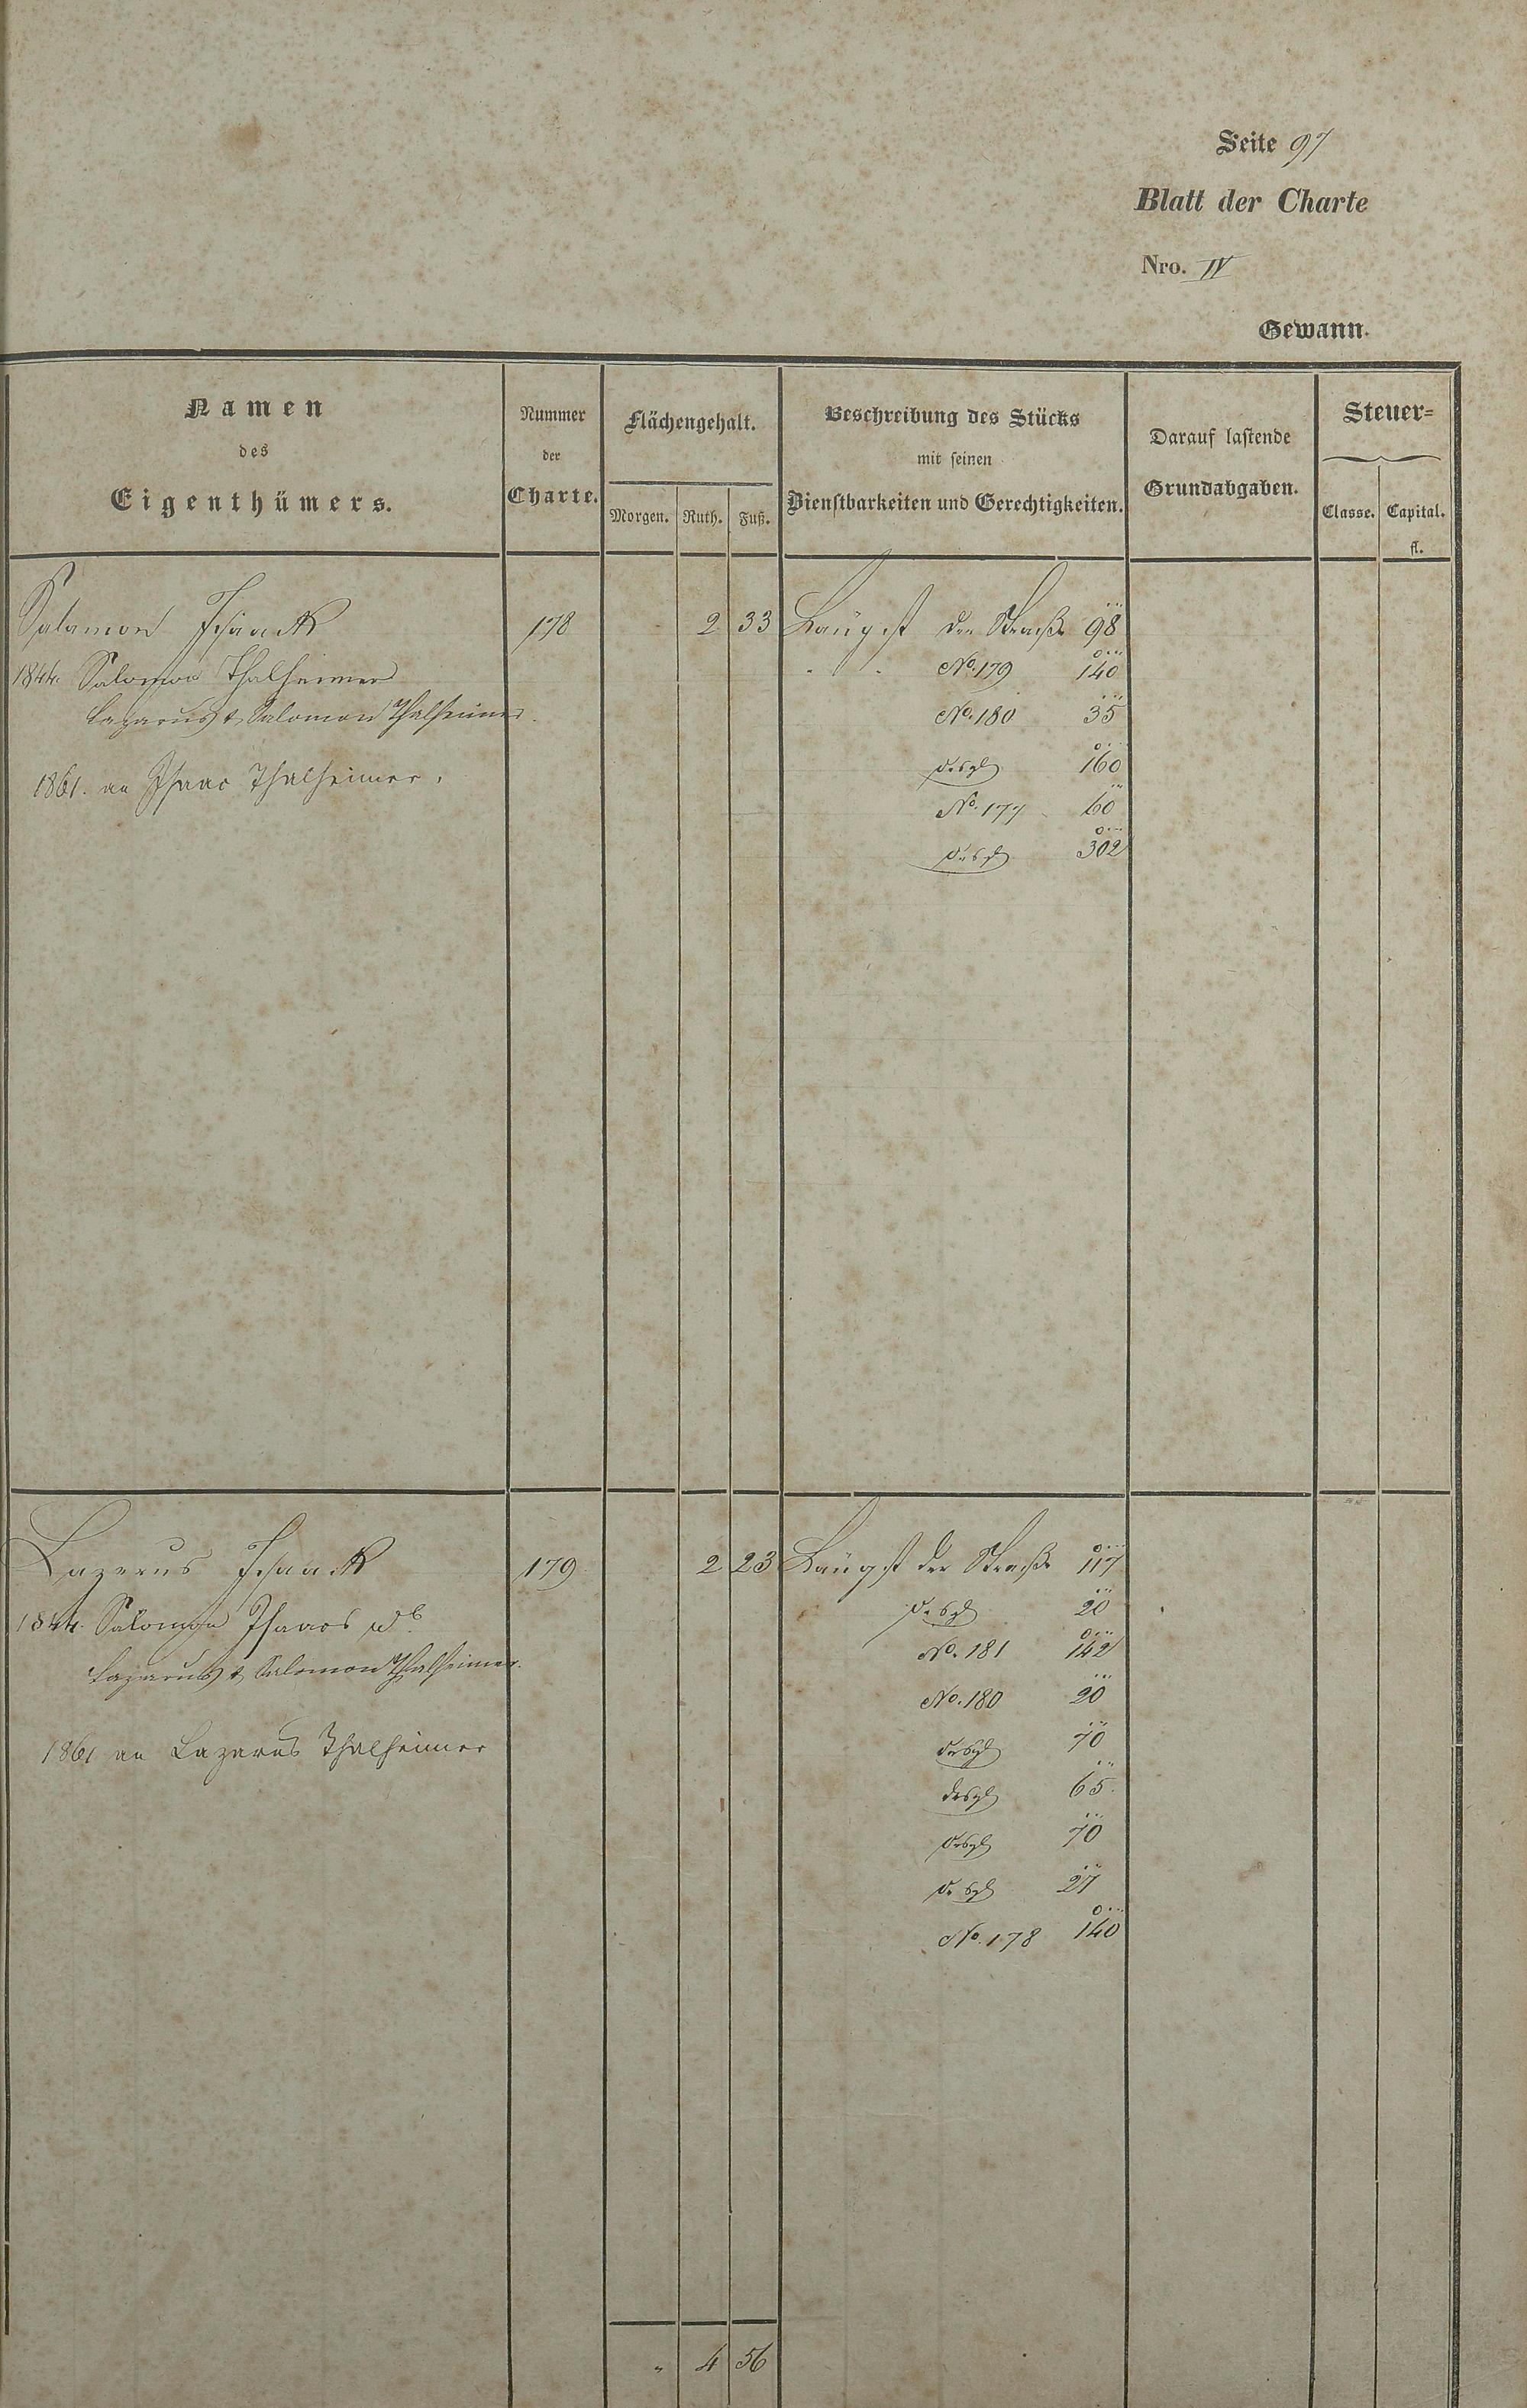 Seite 97
Blatt der Charte
Nro. IV
Gewann.
Namen
des
Eigenthümers.
Nummer
der
Charte.
Flächengehalt.
Morgen. Ruth. Fuß.
Beschreibung des Stücks
mit seinen
Dienstbarkeiten und Gerechtigkeiten.
Darauf lastende
Grundabgaben.
Steuer=
Classe. Capital.
fl.
Salamon Isaack 178 2 33 Längst der Straße 98
1844. Salomon Thalheimer No. 179 140
Lazarus & Salomon Thalheimer. No. 180 35
desgl 160
1861. an Isaac Thalheimer. No. 177 60
desgl 302
Lazerus Isaack 179 2 23 Längst der Straße 117
1844. Salomon Isaacs desgl 20
No. 181 142
Lazarus & Salomon Thalheimer.
No. 180 20
1861 an Lazarus Thalheimer desgl 70
desgl 65
desgl 70
desgl 27
No. 178 140
" 4 56